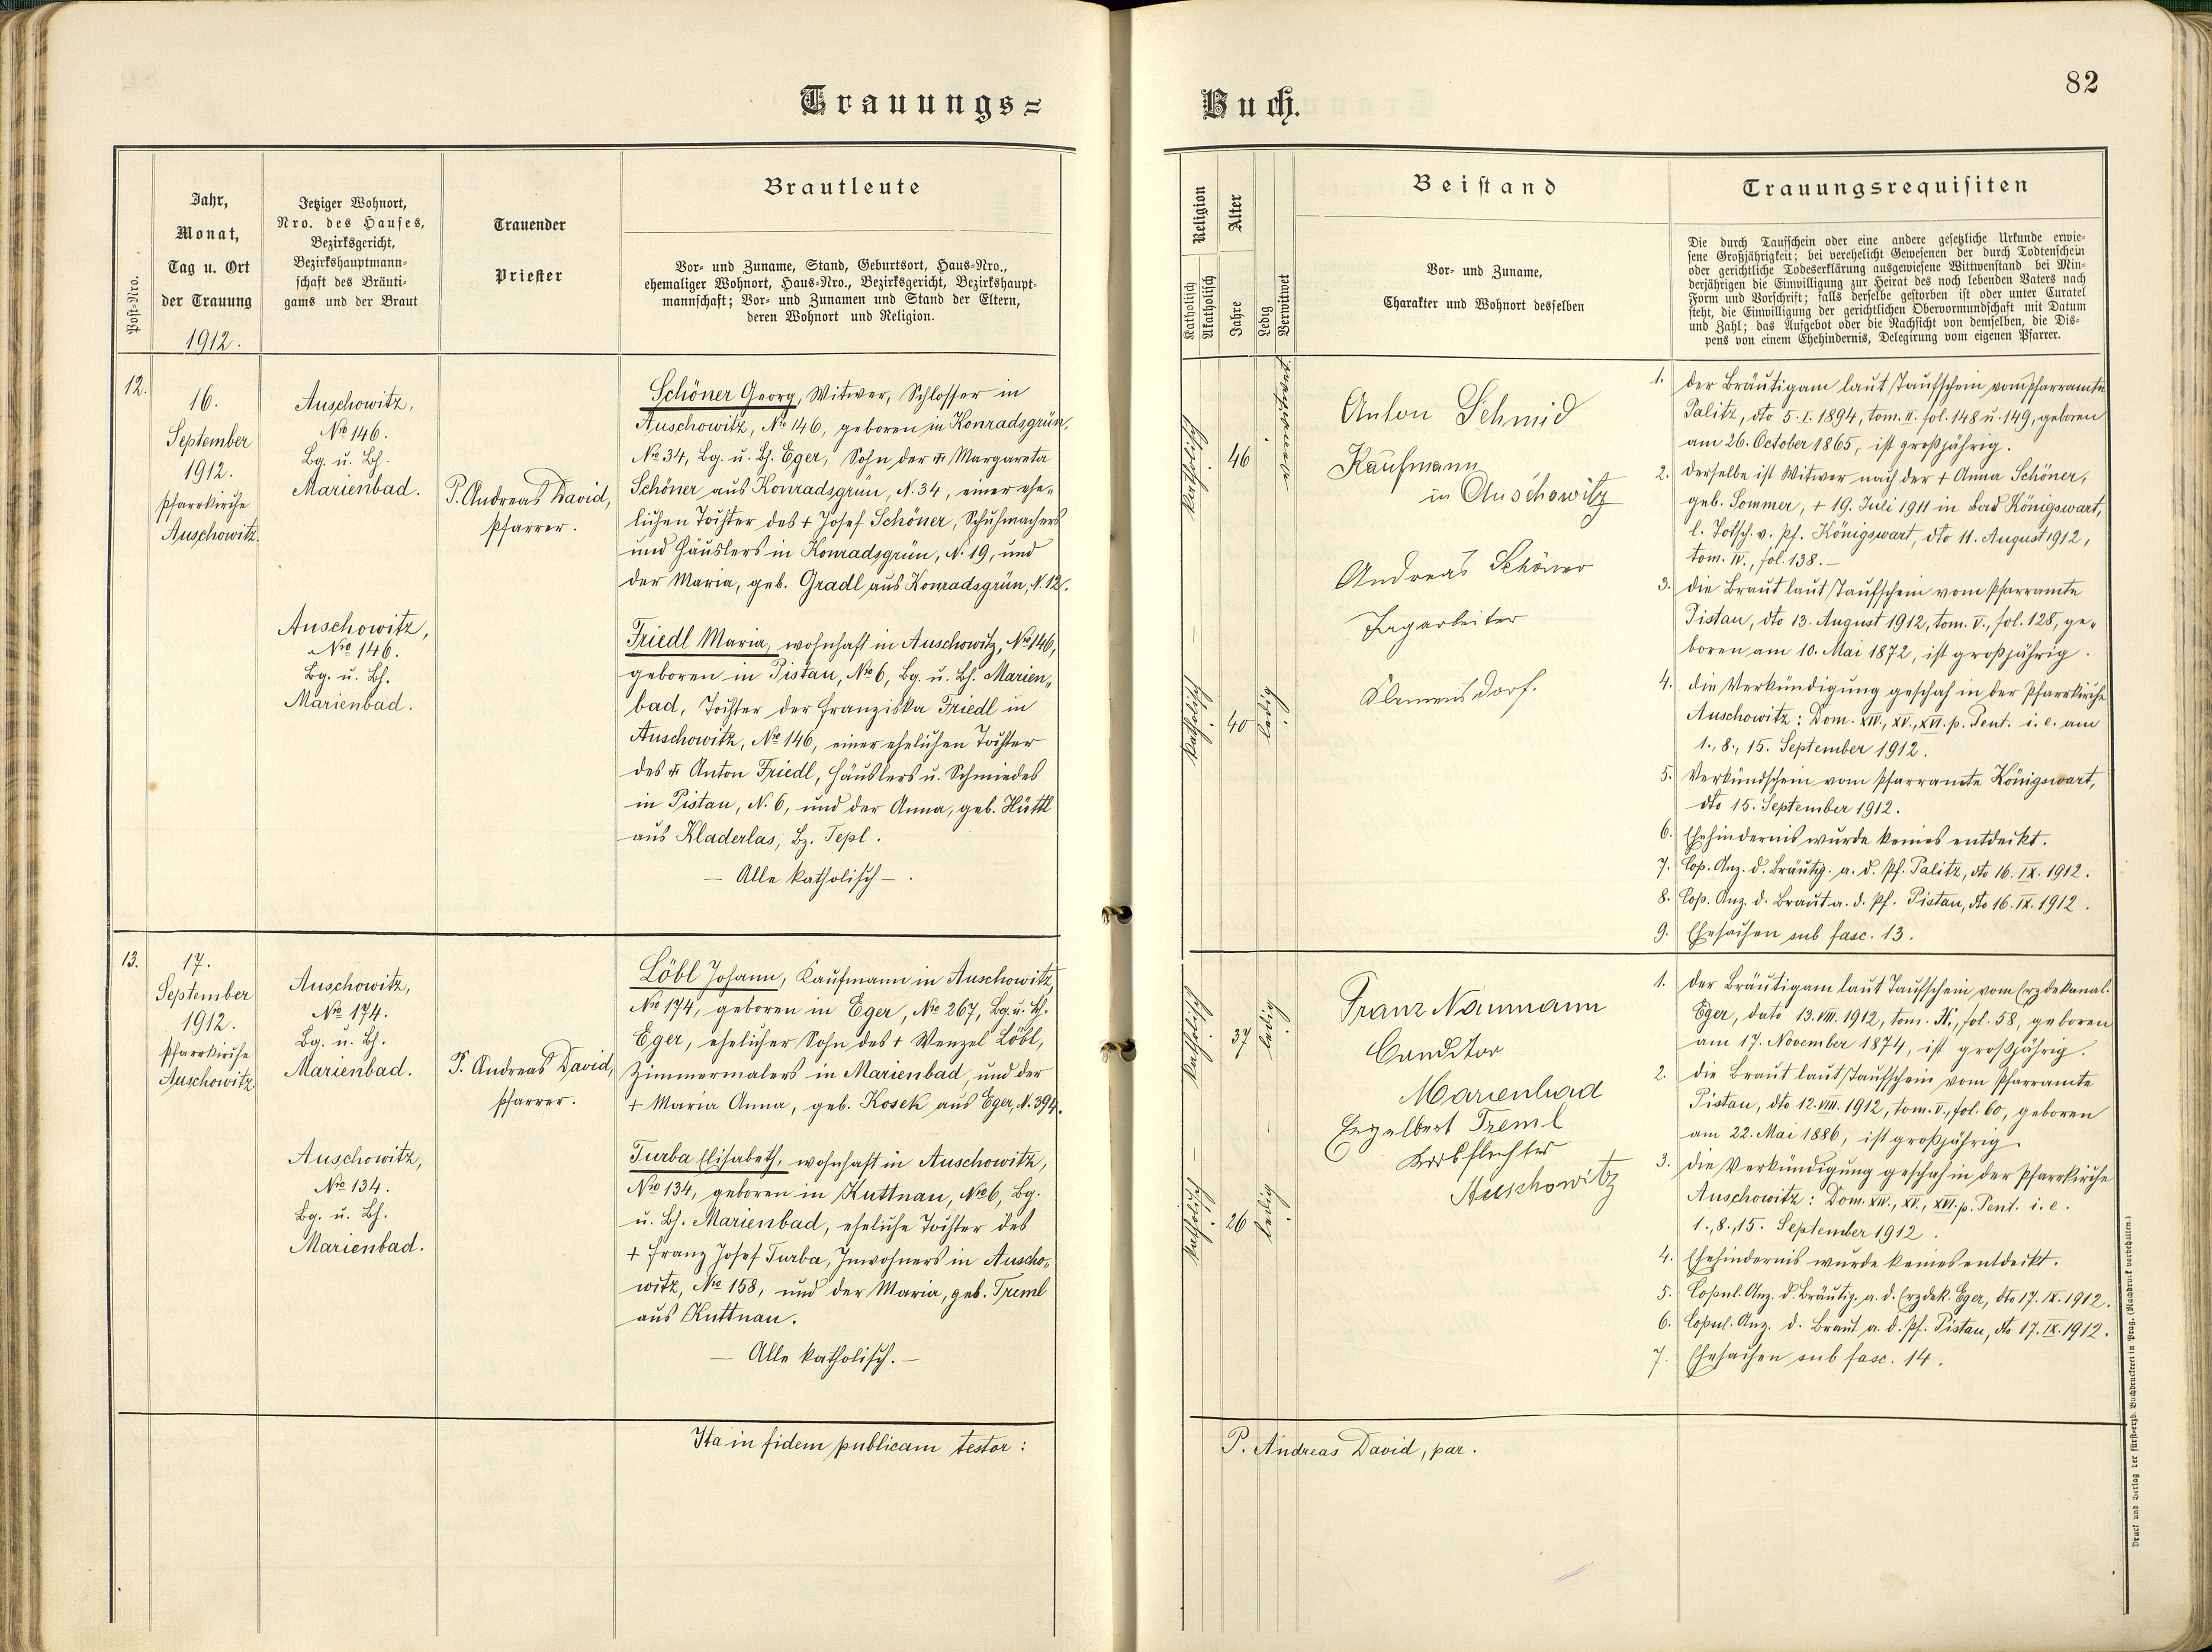 Trauungs=
Buch.
82
Post-Nro.
Jahr,
Monat,
Tag u. Ort
der Trauung
1912.
Jetziger Wohnort,
Nro. des Hauses,
Bezirksgericht,
Bezirkshauptmann-
schaft des Bräuti-
gams und der Braut
Trauender
Priester
Brautleute
Vor- und Zuname, Stand, Geburtsort, Haus-Nro.,
ehemaliger Wohnort, Haus-Nro., Bezirksgericht, Bezirkshaupt-
mannschaft; Vor- und Zunamen und Stand der Eltern,
deren Wohnort und Religion.
Religion
Katholisch
Akatholisch
Alter
Jahre
Ledig
Verwitwet
Beistand
Vor- und Zuname,
Charakter und Wohnort desselben
Trauungsrequisiten
Die durch Taufschein oder eine andere gesetzliche Urkunde erwie-
sene Großjährigkeit; bei verehelicht Gewesenen der durch Todtenschein
oder gerichtliche Todeserklärung ausgewiesene Wittwenstand bei Min-
derjährigen die Einwilligung zur Heirat des noch lebenden Vaters nach
Form und Vorschrift; falls derselbe gestorben ist oder unter Curatel
steht, die Einwilligung der gerichtlichen Obervormundschaft mit Datum
und Zahl; das Aufgebot oder die Nachsicht von demselben, die Dis-
pens von einem Ehehindernis, Delegirung vom eigenen Pfarrer.
12.
16.
September
1912.
Pfarrkirche
Auschowitz.
Auschowitz,
Nro 146.
Bg. u. Bh.
Marienbad.
Auschowitz,
Nro 146.
Bg. u. Bh.
Marienbad.
P. Andreas David,
Pfarrer.
Schöner Georg, Witwer, Schlosser in
Auschowitz, Nro 146, geboren in Konradsgrün,
Nro 34, Bg. u. Bh. Eger, Sohn der ++ Margareta
Schöner aus Konradsgrün, N. 34, einer ehe„
lichen Tochter des + Josef Schöner, Schuhmachers
und Häuslers in Konradsgrün, N. 19, und
der Maria, geb. Gradl aus Konradsgrün, N. 12.
Friedl Maria, wohnhaft in Auschowitz, Nro 146,
geboren in Pistau, Nro 6, Bg. u. Bh. Marien„
bad, Tochter der Franziska Friedl in
Auschowitz, Nro 146, einer ehelichen Tochter
des ++ Anton Friedl, Häuslers u. Schmiedes
in Pistau, N. 6, und der Anna, geb. Hüttl
aus Kladerlas, Bz. Tepl.
— Alle katholisch — .
katholisch
46
verwitwet
katholisch
40
ledig
Anton Schmid
Kaufmann
in Auschowitz
Andreas Schöner
Tagarbeiter
Klemensdorf.
1. der Bräutigam laut Taufschein vom Pfarramte
Palitz, dto 5. I. 1894, tom. II. fol. 148 u. 149, geboren
am 26. October 1865, ist großjährig.
2. derselbe ist Witwer nach der + Anna Schöner,
geb. Sommer, + 19. Juli 1911 in Bad Königswart,
l. Totsch. v. Pf. Königswart, dto 11. August 1912,
tom. IV., fol. 138. —
3. die Braut laut Taufschein vom Pfarramte
Pistau, dto 13. August 1912, tom. V., fol. 128, ge„
boren am 10. Mai 1872, ist großjährig.
4. die Verkündigung geschah in der Pfarrkirche
Auschowitz: Dom. XIV., XV., XVI. p. Pent. i. e. am
1., 8., 15. September 1912.
5. Verkündschein vom Pfarramte Königswart,
dto 15. September 1912.
6. Ehehindernis wurde keines entdeckt.
7. Cop. Anz. d. Bräutig. a. d. Pf. Palitz, dto 16. IX. 1912.
8. Cop. Anz. d. Braut a. d. Pf. Pistau, dto 16. IX. 1912.
9. Ehesachen sub fasc. 13.
13.
17.
September
1912.
Pfarrkirche
Auschowitz.
Auschowitz,
Nro 174.
Bg. u. Bh.
Marienbad.
Auschowitz,
Nro 134.
Bg. u. Bh.
Marienbad.
P. Andreas David,
Pfarrer.
Löbl Johann, Kaufmann in Auschowitz,
Nro 174, geboren in Eger, Nro 267, Bg. u. Bh.
Eger, ehelicher Sohn des + Wenzel Löbl,
Zimmermalers in Marienbad, und der
+ Maria Anna, geb. Kosek aus Eger, N. 394.
Turba Elisabeth, wohnhaft in Auschowitz,
Nro 134, geboren in Kuttnau, Nro 6, Bg.
u. Bh. Marienbad, eheliche Tochter des
+ Franz Josef Turba, Inwohners in Auscho„
witz, Nro 158, und der Maria, geb. Treml
aus Kuttnau.
— Alle katholisch. —
katholisch
37
ledig
katholisch
26
ledig
Franz Naumann
Conditor
Marienbad
Engelbert Treml
Korbflechter
Auschowitz
1. der Bräutigam laut Taufschein vom Erzdekanal.
Eger, dato 13. VIII. 1912, fol. 58, geboren
am 17. November 1874, ist großjährig.
2. die Braut laut Taufschein vom Pfarramte
Pistau, dto 12. VIII. 1912, tom. V., fol. 60, geboren
am 22. Mai 1886, ist großjährig.
3. die Verkündigung geschah in der Pfarrkirche
Auschowitz: Dom. XIV., XV., XVI. p. Pent. i. e.
1., 8., 15. September 1912.
4. Ehehindernis wurde keines entdeckt.
5. Copul. Anz. d. Bräutig. a. d. Erzdek. Eger, dto 17. IX. 1912.
6. Copul. Anz. d. Braut a. d. Pf. Pistau, dto 17. IX. 1912.
7. Ehesachen sub fasc. 14.
Ita in fidem publicam testor:
P. Andreas David, par.
Druck und Verlag der fürst-erzb. Buchdruckerei in Prag. (Nachdruck vorbehalten.)